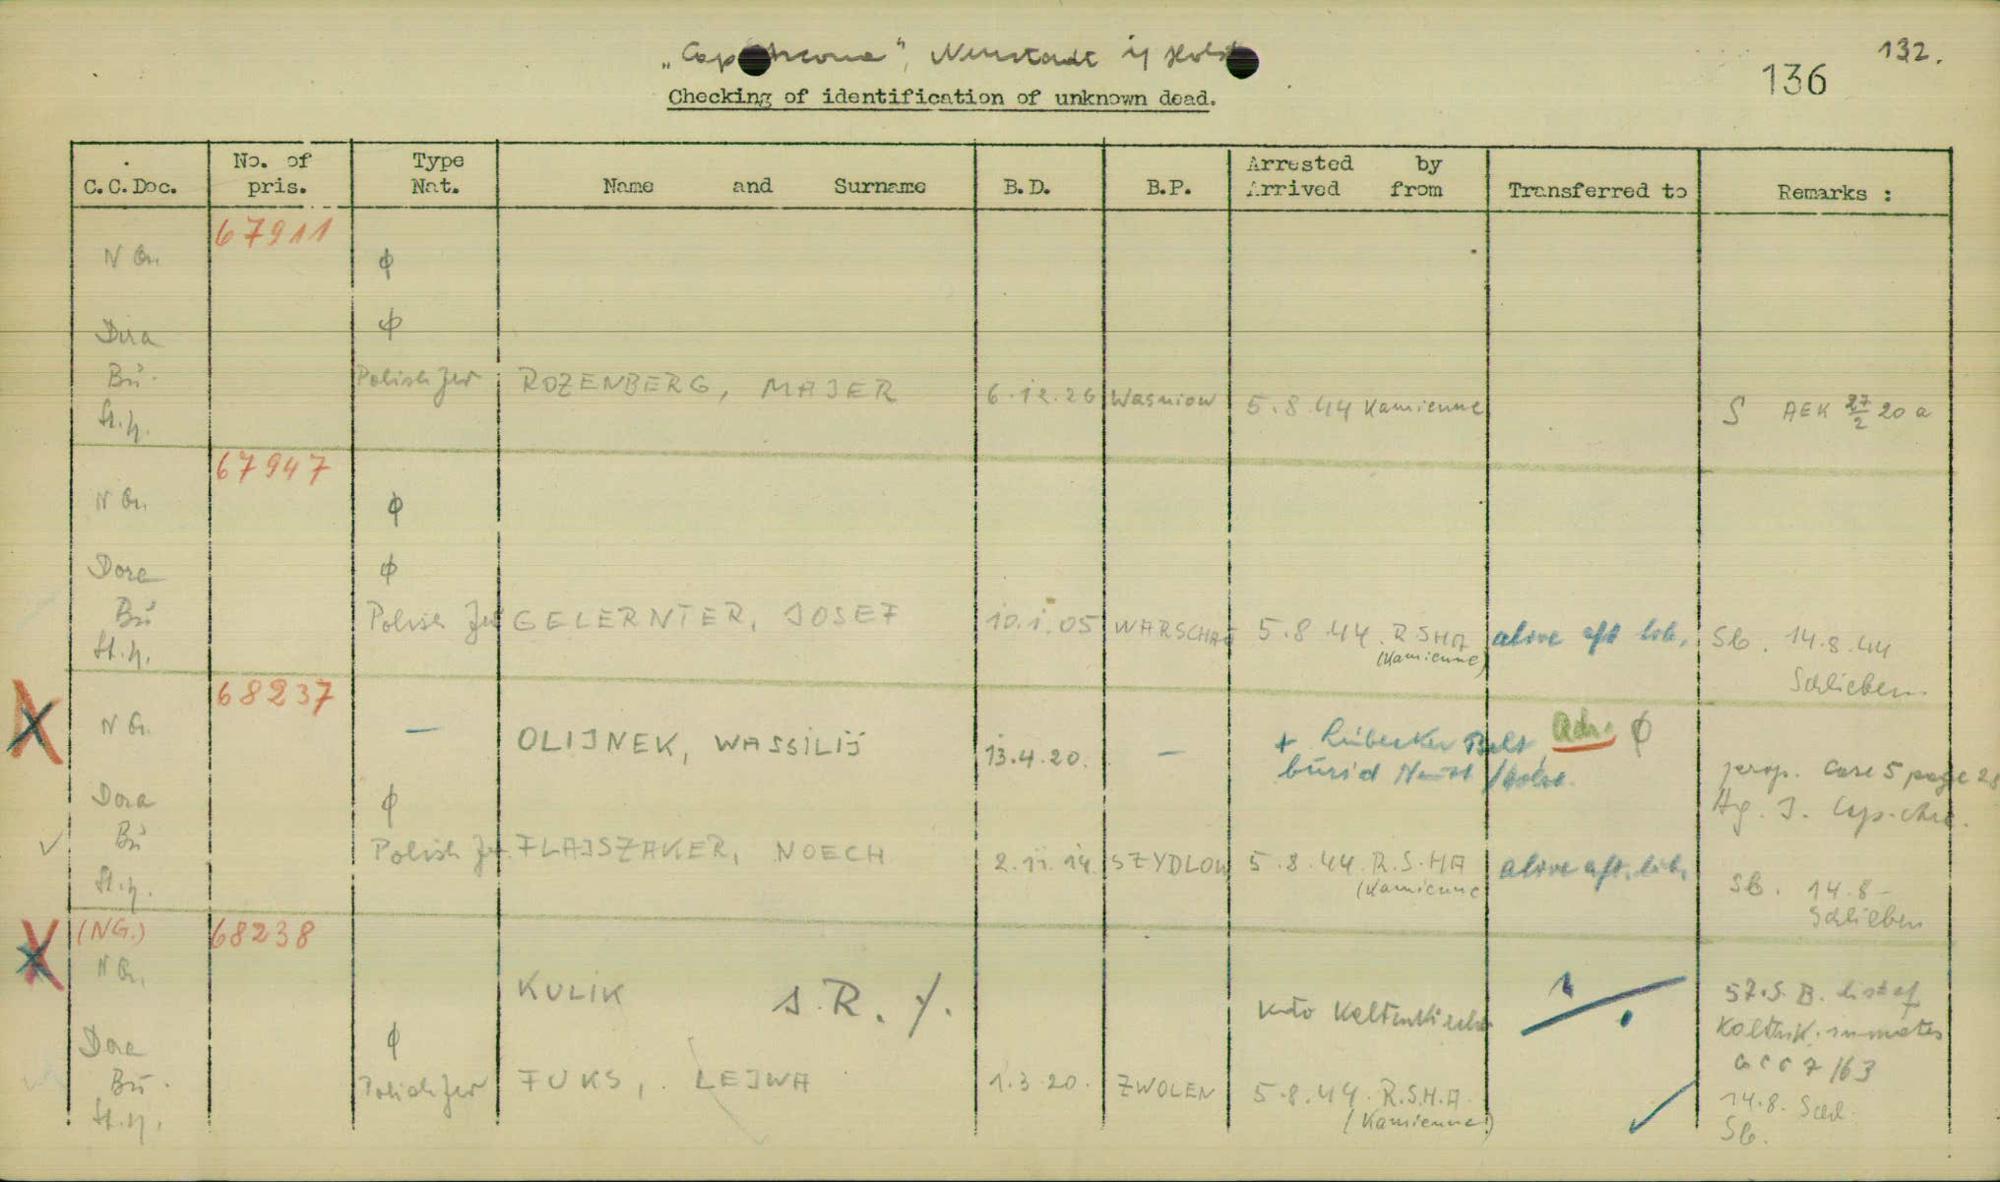 "Cap Arcona", Neustadt i/ Holst
132.
136
Checking of identification of unknown dead.
C.C.Doc. No. of pris. Type Nat. Name and Surname B.D. B.P. Arrested by Arrived from Transferred to Remarks :
67911
N Gr. ϕ
Dora ϕ
Bu. Polish Jew ROZENBERG, MAJER 6.12.26 Wasniow 5.8.44 Kamienne S AEK 27/2 20 a
St.h.
67947
N Gr. ϕ
Dora ϕ
Bu Polish Jew GELERNTER, JOSEF 10.1.05 WARSCHAU 5.8.44 R.SHA (Kamienne) alive aft lib. Sb. 14.8.44
St.h. Schlieben
X 68237
N G. — OLIJNEK, WASSILIJ 13.4.20. — + Lübecker , Adr. ϕ
buried
prop. Case 5 page
Dora ϕ
✓ Bu Polish Jew FLAJSZAKER, NOECH 2.11.14 SZYDLOW 5.8.44 R.S.HA (Kamienne alive aft. lib.
St.h. Sb. 14.8-
Schlieben
X (NG.) 68238
N Gr. KULIK S.R. Kdo Kaltenkirchen 57.S.B. list of
Kaltenk. inmates
Dora ϕ acc 7/63
Bu. Polish Jew FUKS, LEJWA 1.3.20. ZWOLEN 5.8.44. R.S.H.A. (Kamienne) ✓ 14.8. Schl.
St.h. Sb.